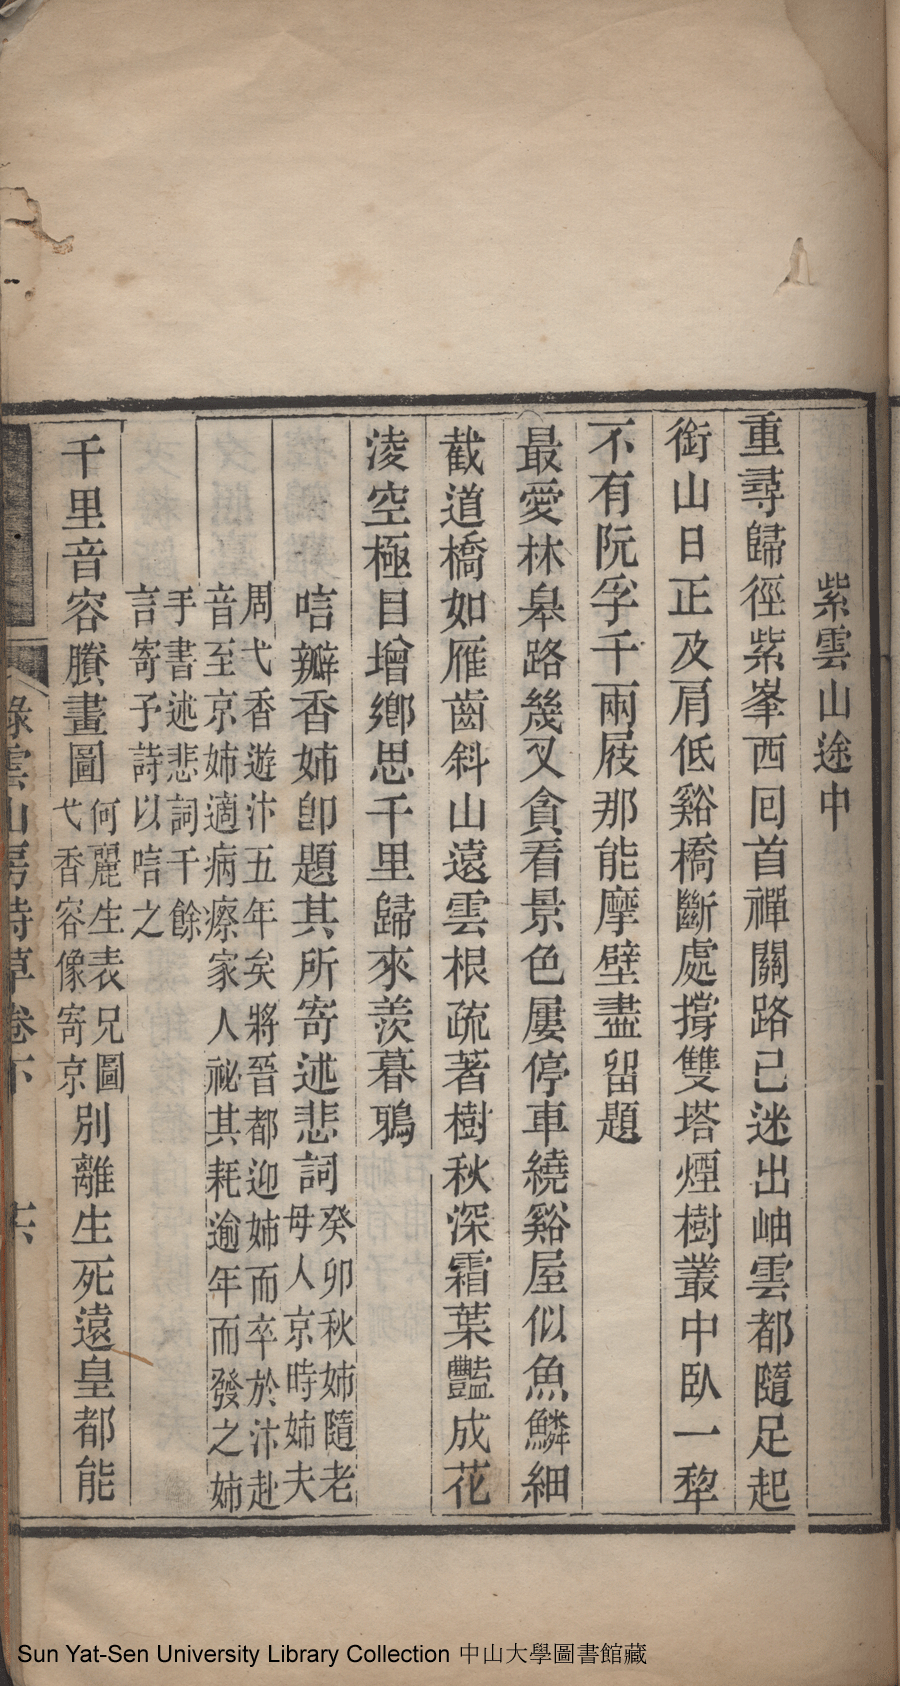 紫雲山途中
重尋歸徑紫峯西囘首禪關路已迷出岫雲都隨足起
銜山日正及肩低谿橋斷處撐雙塔煙樹叢中臥一犂
不有阮孚千兩屐那能摩壁盡留題
最愛林皋路幾叉貪看景色屢停車繞谿屋似魚鱗細
截道橋如雁齒斜山遠雲根疏著樹秋深霜葉豔成花
淩空極目增鄉思千里歸來羨暮鴉
唁瓣香姊卽題其所寄述悲詞
癸卯秋姊隨老
母人京時姊夫
周弋香遊汴五年矣將晉都迎姊而卒於汴赴
音至京姊適病瘵家人祕其耗逾年而發之姊
手書述悲詞千餘
言寄予詩以唁之
千里音容賸畫圖
何麗生表兄圖
弋香容像寄京
別離生死遠皇都能
綠雲山房詩草卷下
十六
Sun Yat-Sen University Library Collection 中山大學圖書館藏